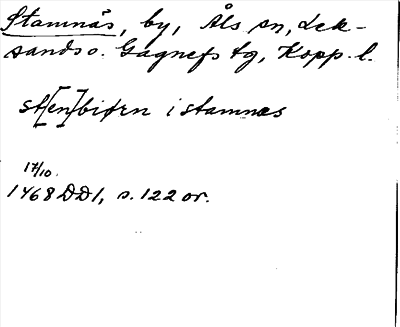 Stamnäs, by, Åls sn, Lek-
sands o. Gagnefs tg, Kopp. l.
st[en]biørn i stamnæs
17/10.
1468 DD1, s. 122 or.